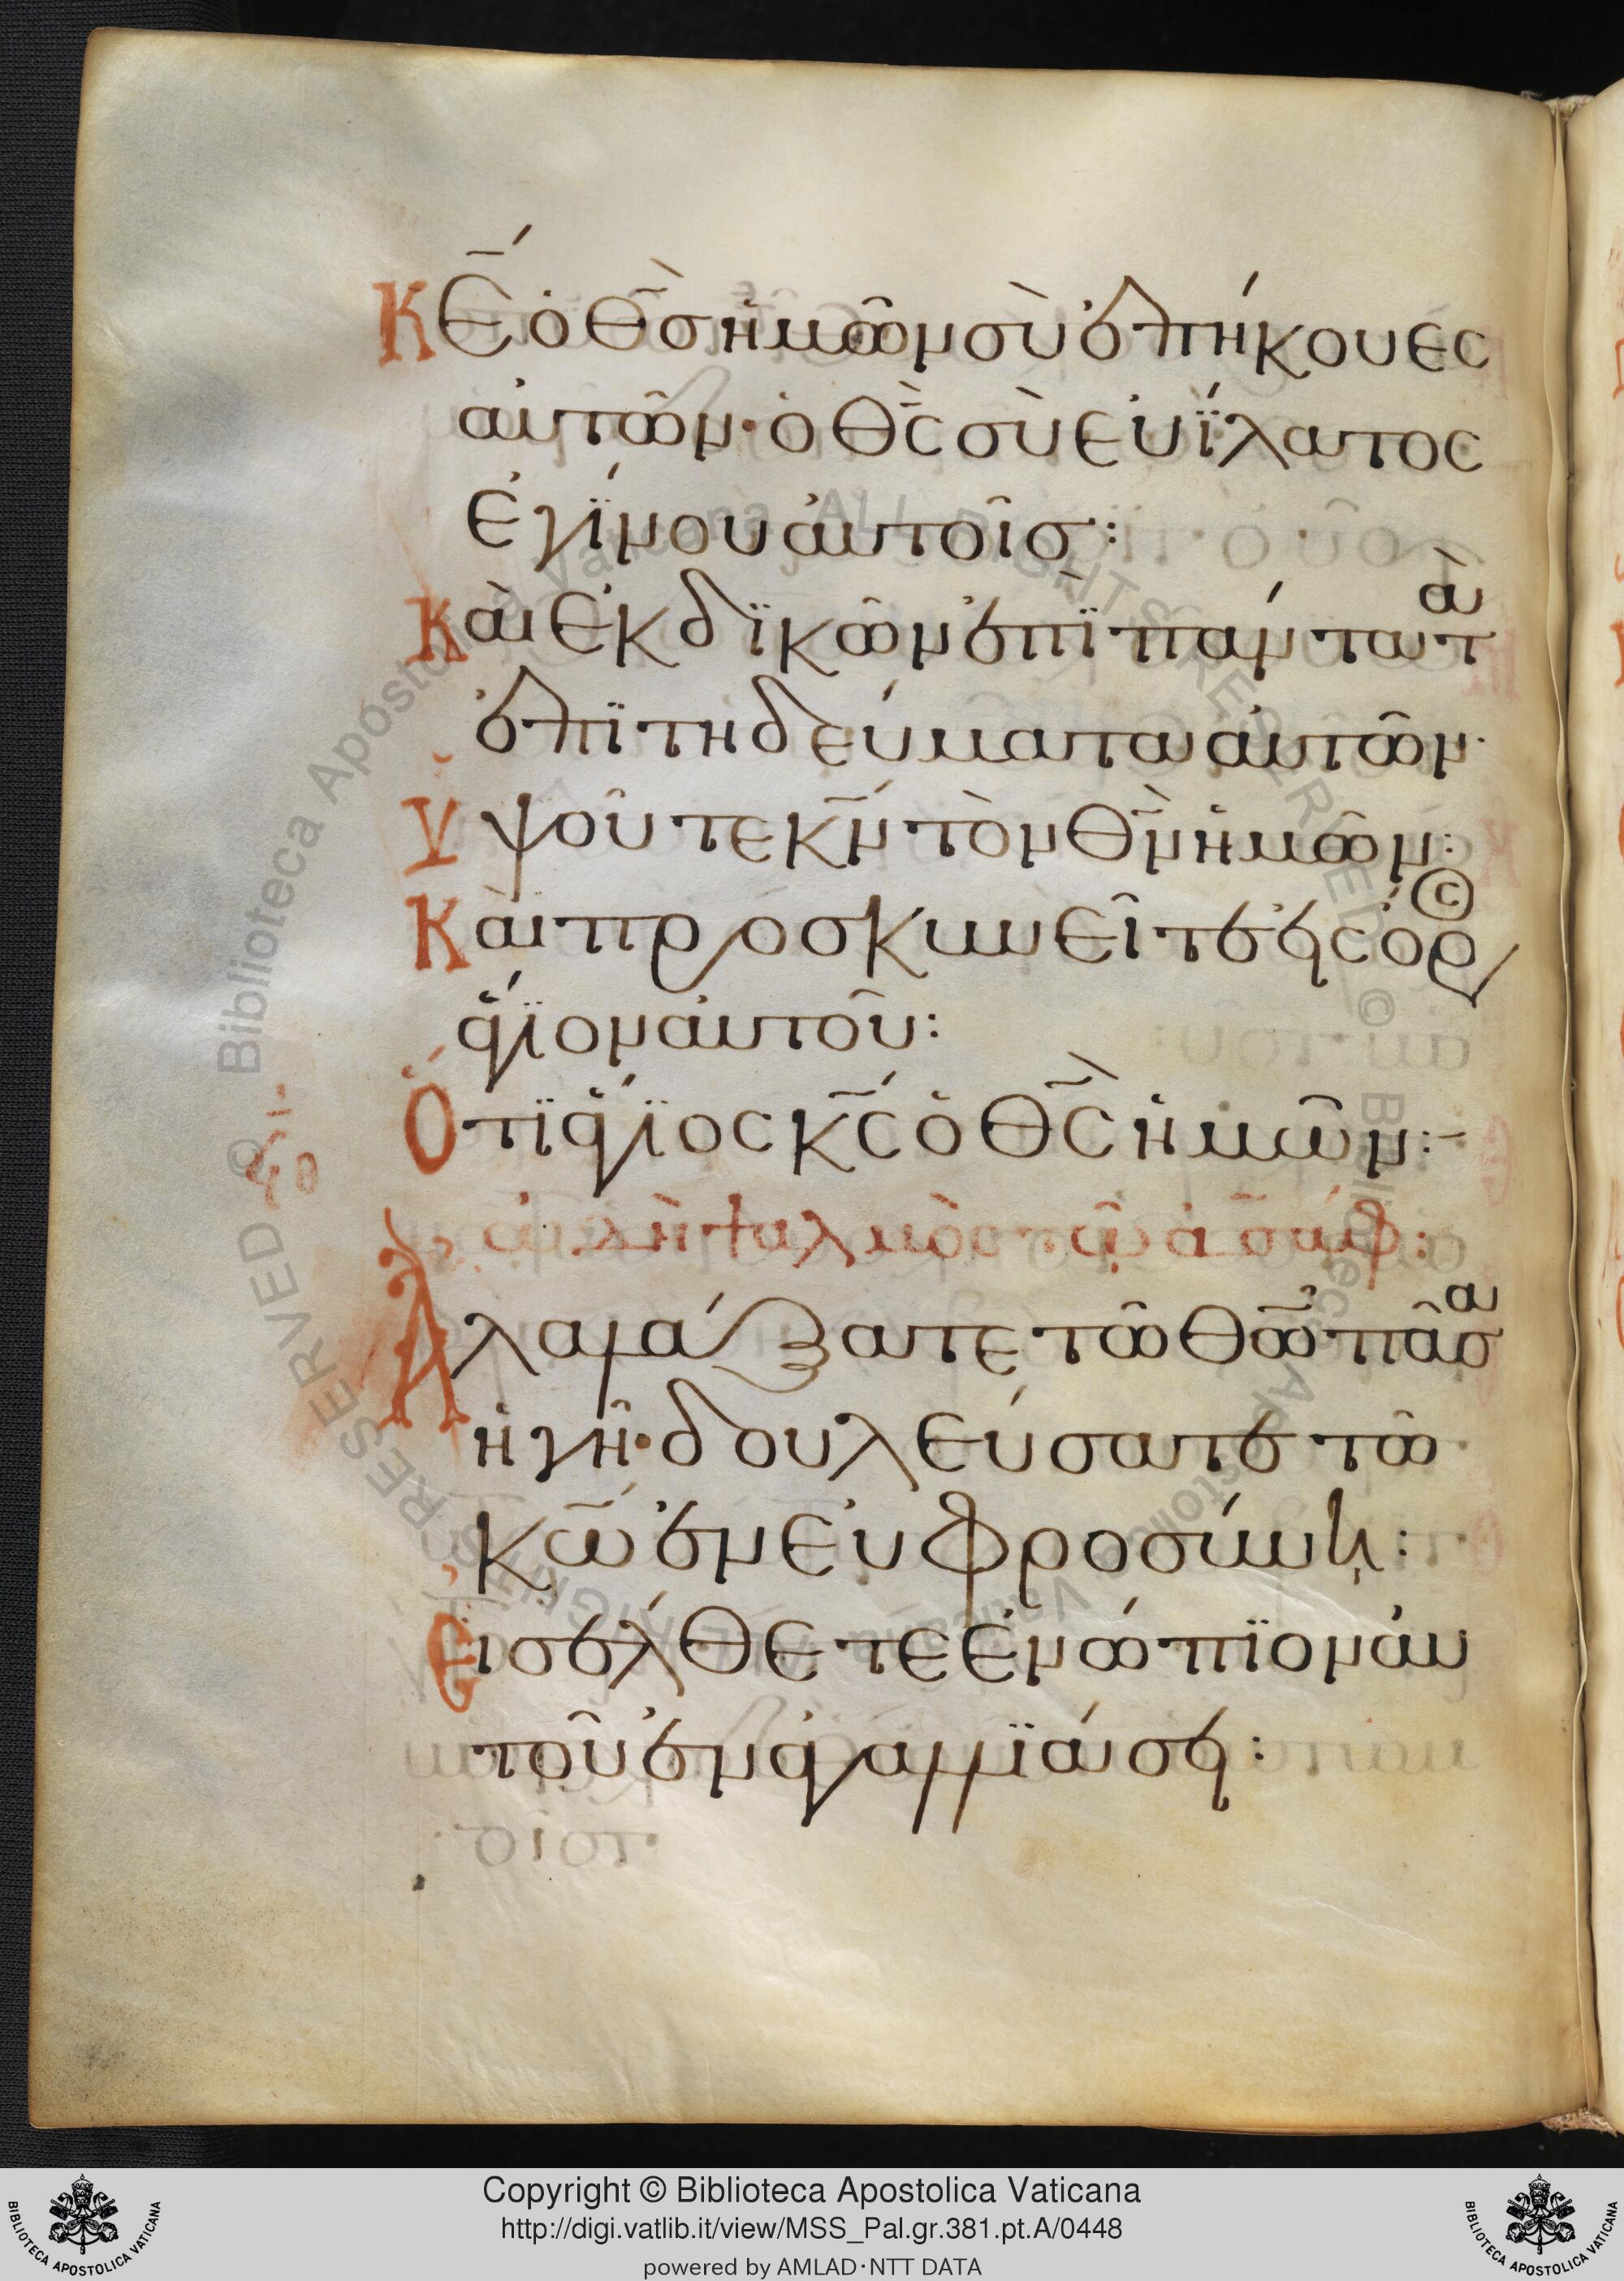 Κ̅Έ ὁ Θ̅ς̀ ἡμῶν σὺ ἐπήκουες
αὐτῶν· ὁ Θ̅ς̀ σὺ εὐΐλατος
ἐγίνου αὐτοῖς:
Καὶ ἐκδϊκῶν ἐπῒ πάντα τὰ
ἐπϊτηδεύματα αὐτῶν·
Ὑψοῦτε κ̅ν́ τὸν Θ̅ν̀ ἡμῶν:
Καὶ προσκυνεῖτε εἰς ὄρος
ἅγϊον αὐτοῦ:
Ὅτϊ ἅγϊος κ̅ς́ ὁ Θ̅ς̀ ἡμῶν:-
ψαλμὸς τῶ ἀσάφ:
Ἀλαλάξατε τῶ Θ̅ῶ πᾶσα
ἡ γῆ· δουλεύσατε τῶ
κ̅ώ ἐν εὐφροσύνη:
Εἰσέλθετε ἐνώπϊον αὐ
τοῦ ἐν ἀγαλλϊάσει:
Copyright © Biblioteca Apostolica Vaticana
http://digi.vatlib.it/view/MSS_Pal.gr.381.pt.A/0448
powered by AMLAD·NTT DATA
BIBLIOTECA APOSTOLICA VATICANA
BIBLIOTECA APOSTOLICA VATICANA